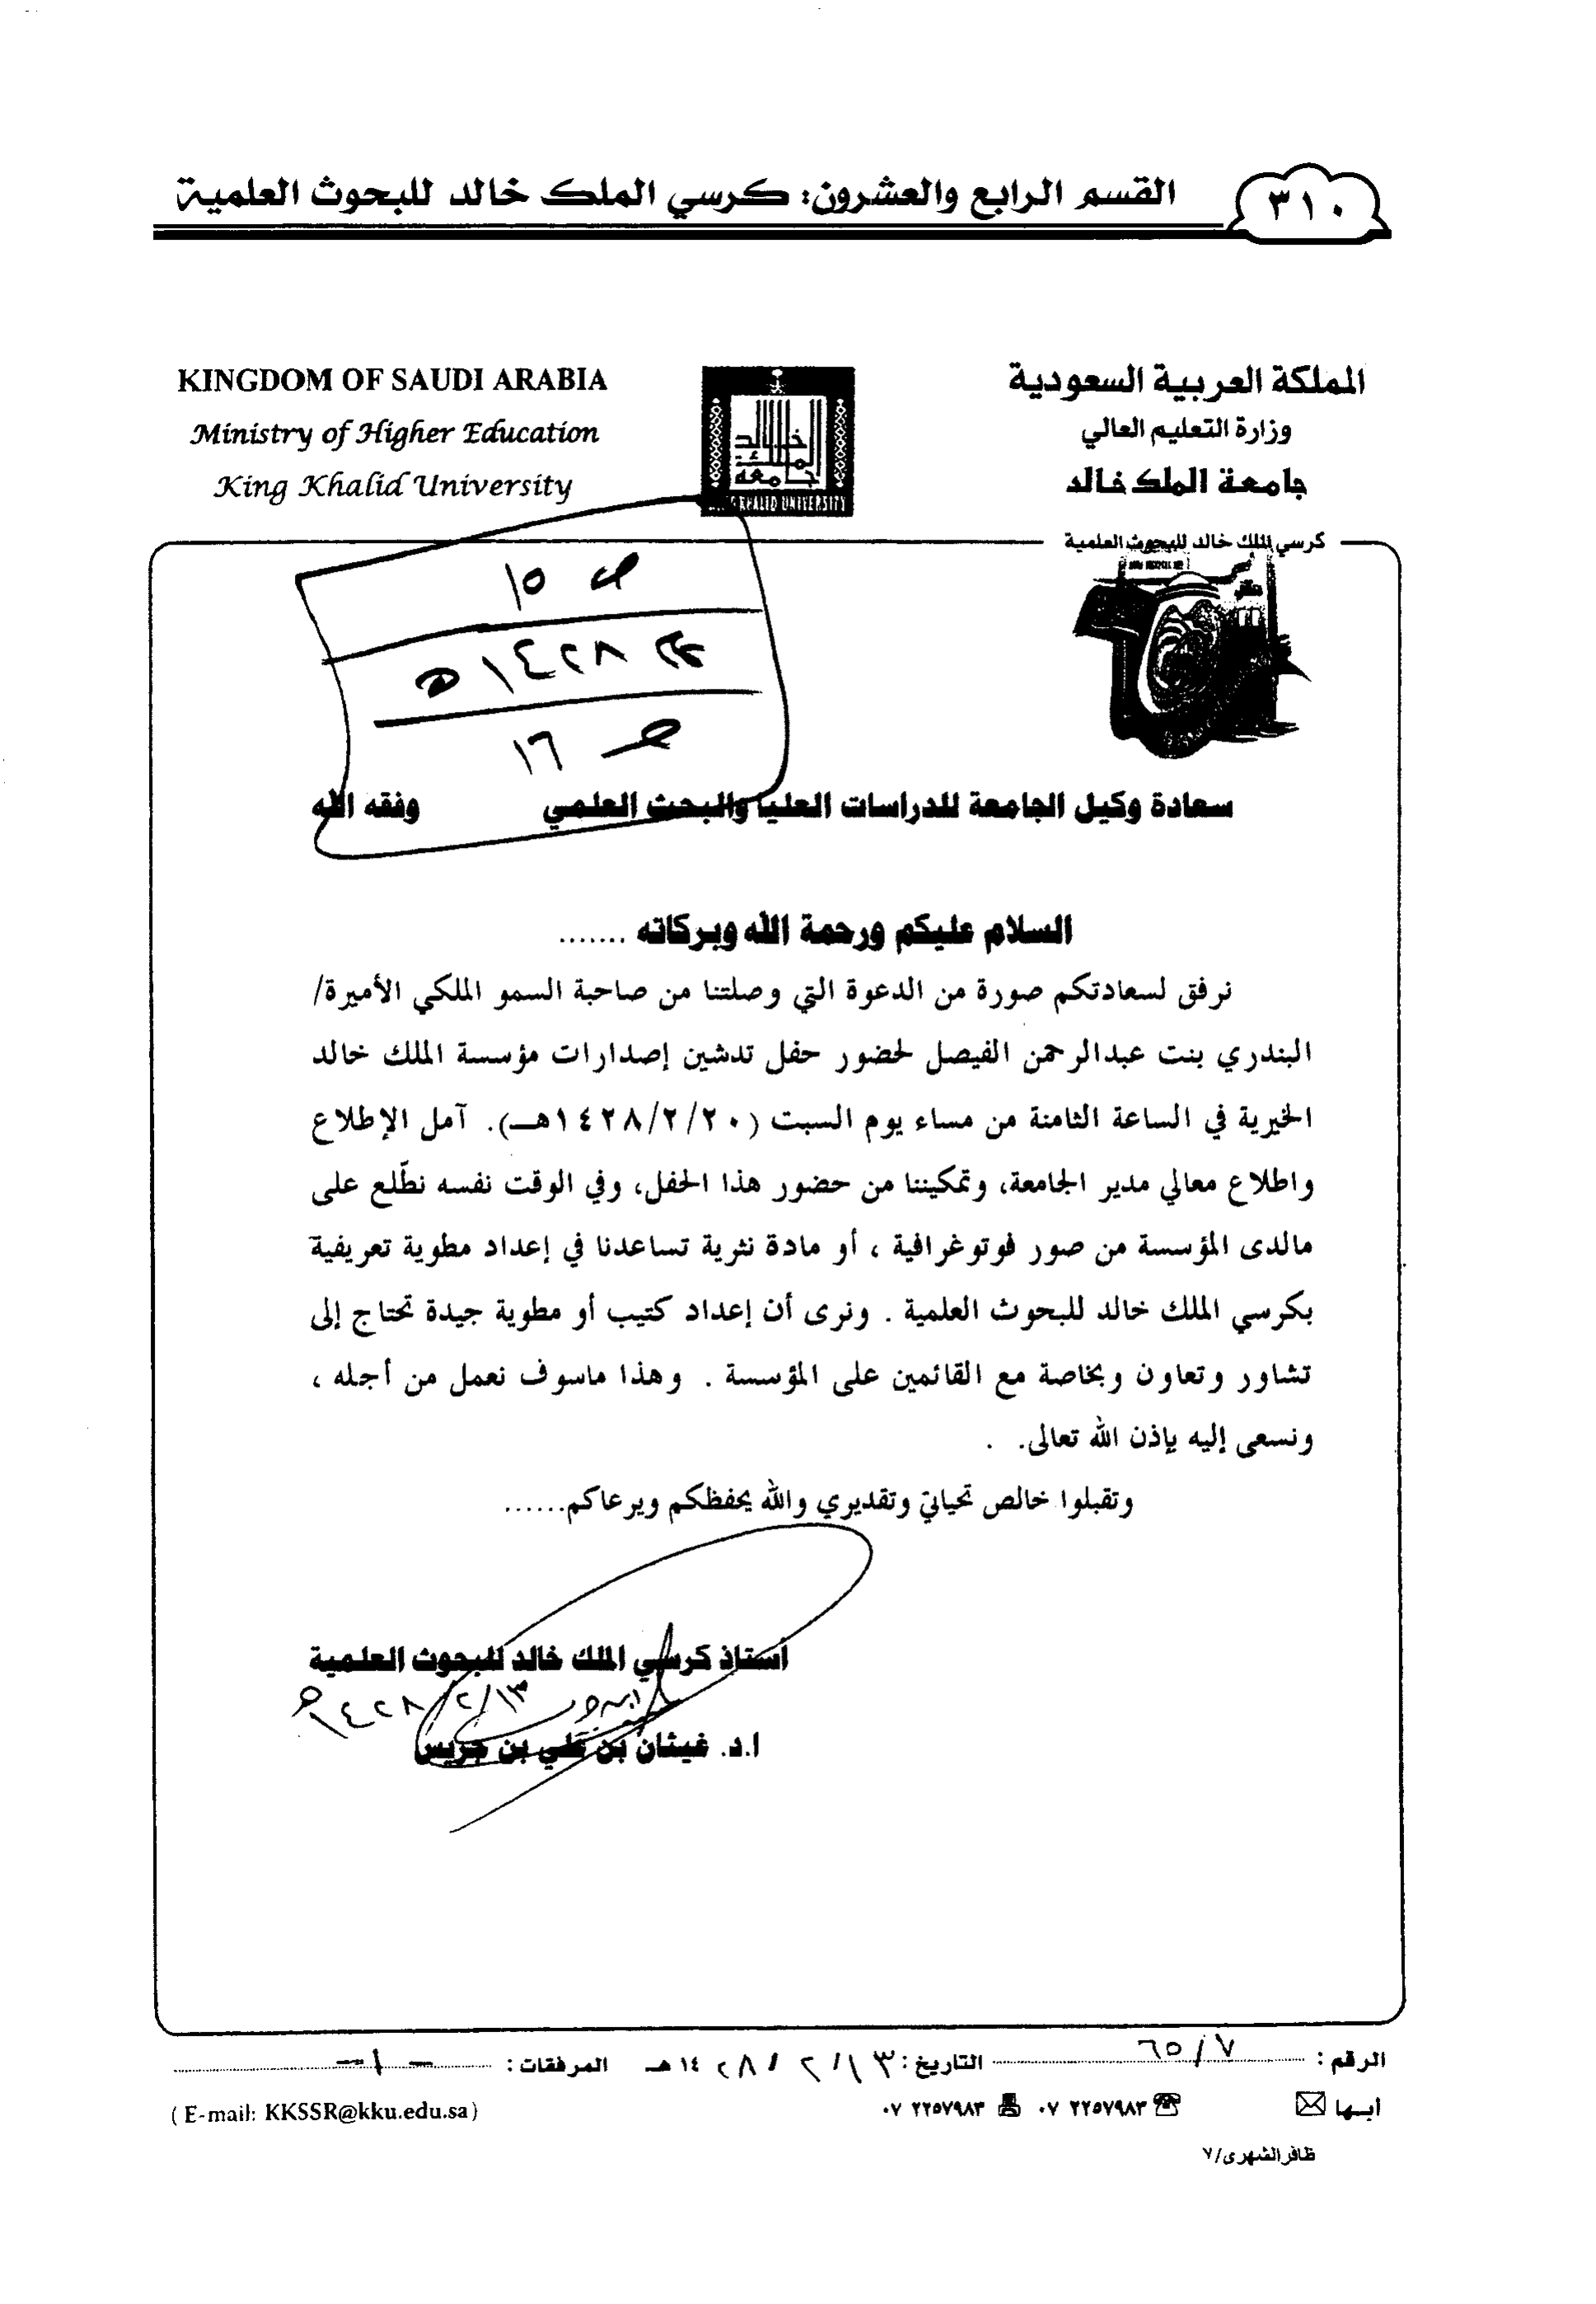 ٣١٠
القسم الرابع والعشرون: كرسي الملك خالد للبحوث العلمية
KINGDOM OF SAUDI ARABIA
Ministry of Higher Education
King Khalid University
KHALID UNIVERSITY
المملكة العربية السعودية
وزارة التعليم العالي
جامعة الملك خالد
كرسي الملك خالد للبحوث العلمية
ص ١٥
١٤٢٨ هـ
١٦
سعادة وكيل الجامعة للدراسات العليا والبحث العلمي وفقه الله
السلام عليكم ورحمة الله وبركاته .......
نرفق لسعادتكم صورة من الدعوة التي وصلتنا من صاحبة السمو الملكي الأميرة/
البندري بنت عبدالرحمن الفيصل لحضور حفل تدشين إصدارات مؤسسة الملك خالد
الخيرية في الساعة الثامنة من مساء يوم السبت (١٤٢٨/٢/٢٠هـ). آمل الإطلاع
واطلاع معالي مدير الجامعة، وتمكيننا من حضور هذا الحفل، وفي الوقت نفسه نطّلع على
مالدى المؤسسة من صور فوتوغرافية ، أو مادة نثرية تساعدنا في إعداد مطوية تعريفية
بكرسي الملك خالد للبحوث العلمية . ونرى أن إعداد كتيب أو مطوية جيدة تحتاج إلى
تشاور وتعاون وبخاصة مع القائمين على المؤسسة . وهذا ماسوف نعمل من أجله ،
ونسعى إليه بإذن الله تعالى. .
وتقبلوا خالص تحياتي وتقديري والله يحفظكم ويرعاكم......
أستاذ كرسي الملك خالد للبحوث العلمية
١٤٢٨/٢/١٣هـ
ا.د. غيثان بن علي بن جريس
الرقم : ٦٥/٧ التاريخ : ١٣ / ٢ / ١٤٢٨ هـ المرفقات : - ١ -
ابها ٠٧ ٢٢٥٧٩٨٣ ٠٧ ٢٢٥٧٩٨٣ ( E-mail: KKSSR@kku.edu.sa)
ظافر الشهري/٧